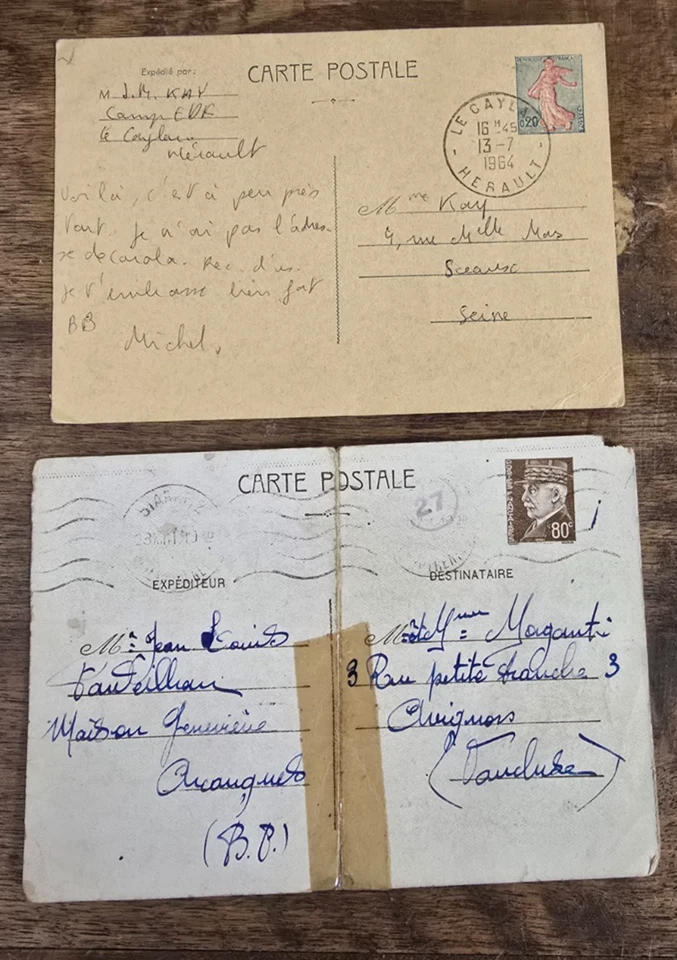 Expédié par:
CARTE POSTALE
M J.M. KAY
Camp EDF
Le Caylar
Hérault
REPUBLIQUE FRANCAISE
0,20
LE CAYLAR
16 H 45
13-7
1964
HERAULT
Voilà, c'est à peu près
tout. Je n'ai pas l'adres-
se de Carola.
Je t'embrasse bien fort
BB
Michel.
Mme Kay
4, rue Mlle Mars
Sceaux
Seine
CARTE POSTALE
BIARRITZ
27
80c
EXPÉDITEUR
DESTINATAIRE
Mr Jean Louis
Vauteilhan
Maison Geneviève
Arcangues
(B.P.)
M et Mme Maganti
3 Rue petite 3
Avignon
(Vaucluse)